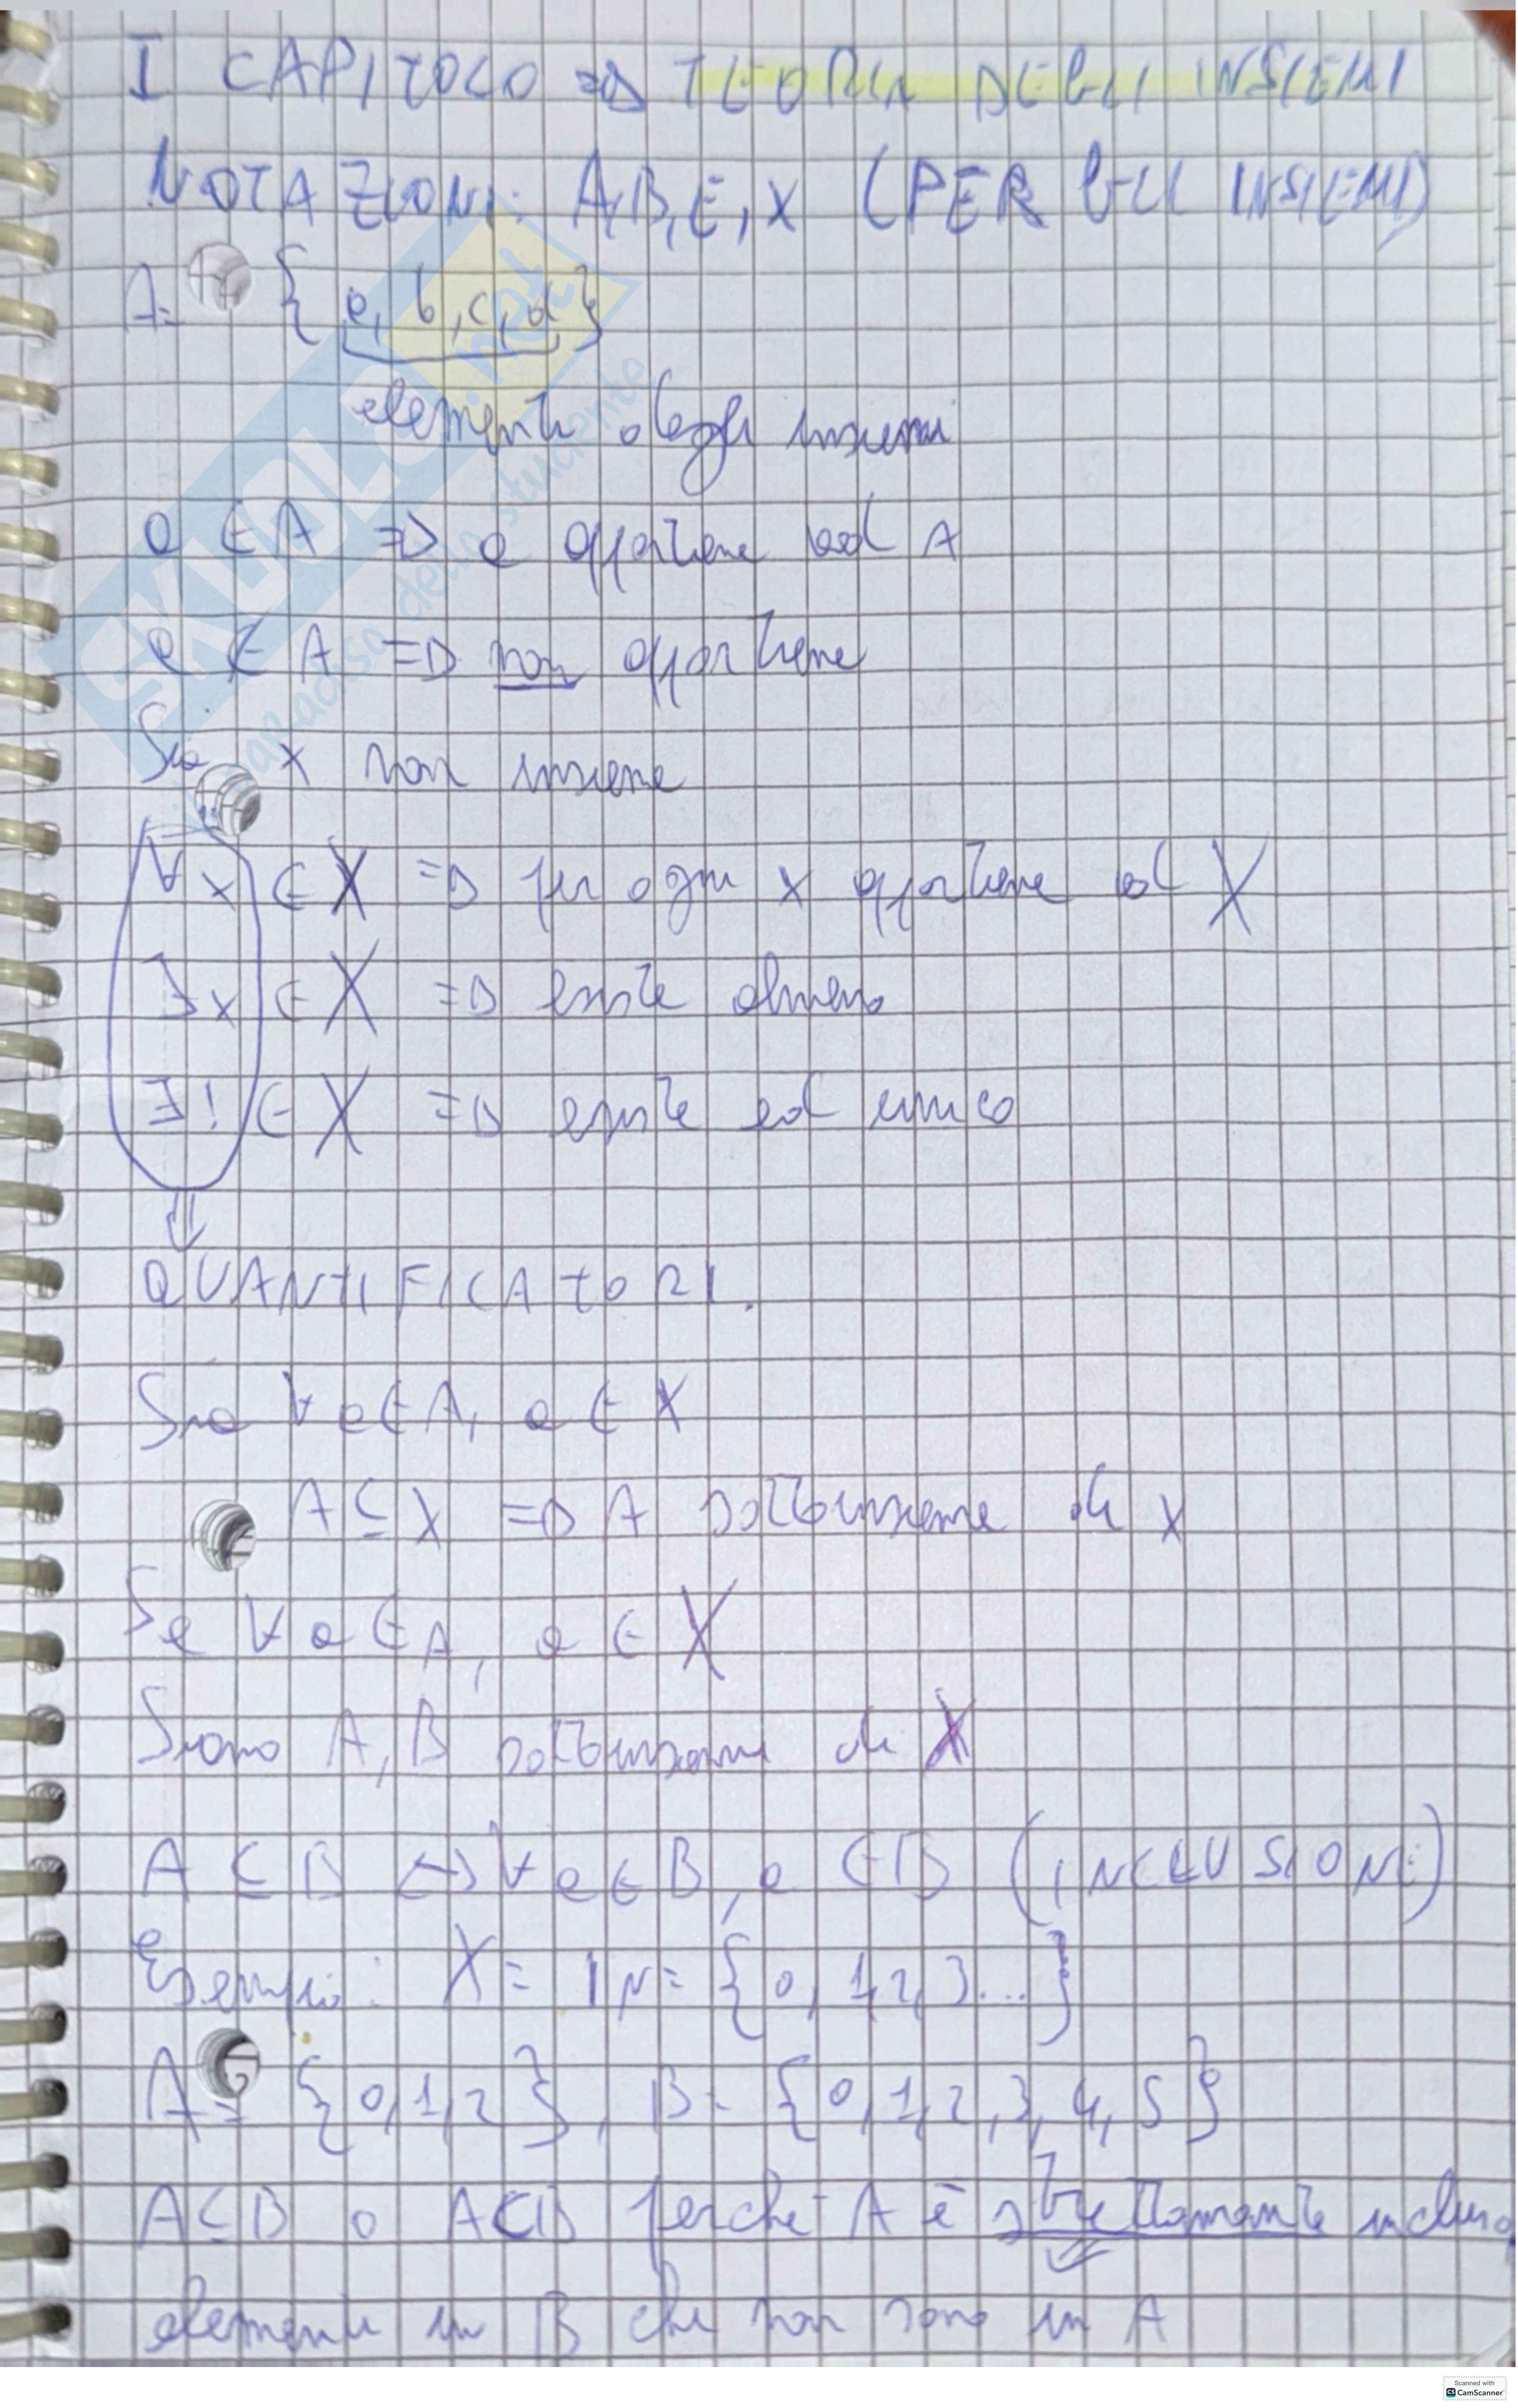 I CAPITOLO => TEORIA DEGLI INSIEMI
NOTAZIONI: A,B,E,X (PER GLI INSIEMI)
A= {a, b, c, d}
elementi degli insiemi
a ∈ A => a appartiene ad A
a ∉ A => non appartiene
Sia X non insieme
∀x ∈ X => per ogni x appartiene ad X
∃x ∈ X => esiste almeno
∃! ∈ X => esiste ed unico
QUANTIFICATORI.
Sia ∀a∈A, a ∈ X
A ⊆ X => A sottoinsieme di X
Se ∀ a ∈ A, a ∈ X
Siano A, B sottoinsiemi di X
A ⊆ B <-> ∀ a ∈ B, a ∈ B (INCLUSIONE)
Esempio: X = IN = {0, 1, 2, 3...}
A = {0, 1, 2}, B = {0, 1, 2, 3, 4, 5}
A⊆B o A⊂B perché A è strettamente incluso
elementi in B che non sono in A
SKUOLA.net
il paradiso dello studente
Scanned with
CS CamScanner